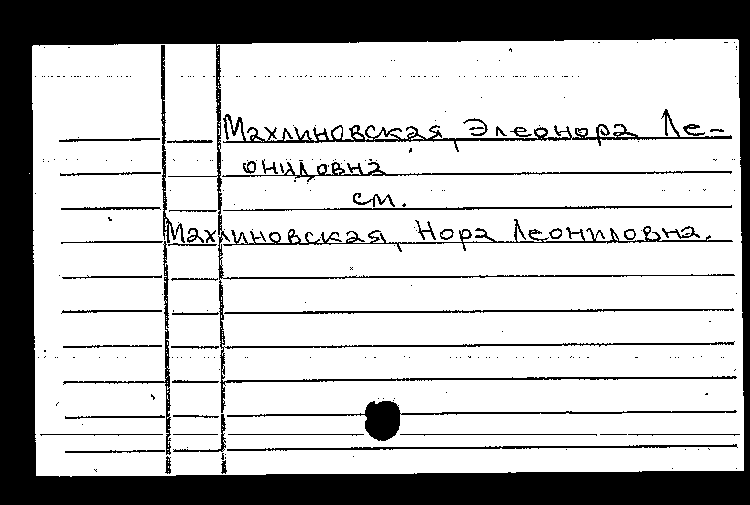 Махлиновская, Элеонора Ле-
онидовна
см.
Махлиновская, Нора Леонидовна.